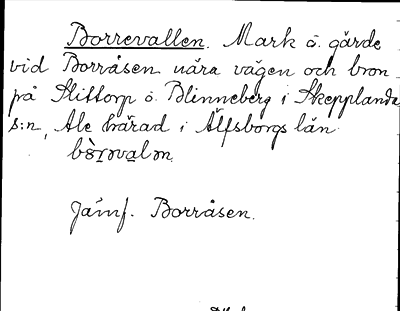 Borrevallen. Mark ö. gärde
vid Borråsen nära vägen och bron
på Slittorp ö. Blinneberg i Skepplanda
s:n, Ale härad i Älfsborgs län.
Jämf. Borråsen.